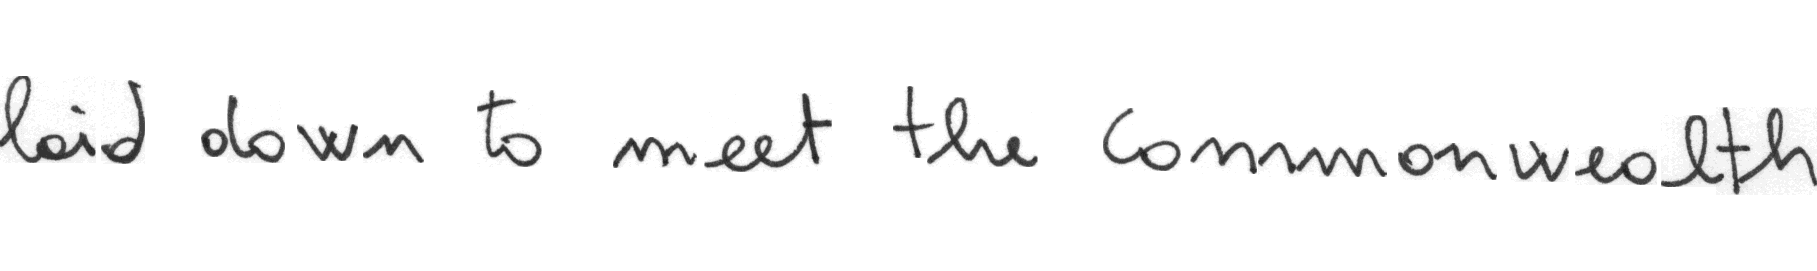 laid down to meet the Commonwealth